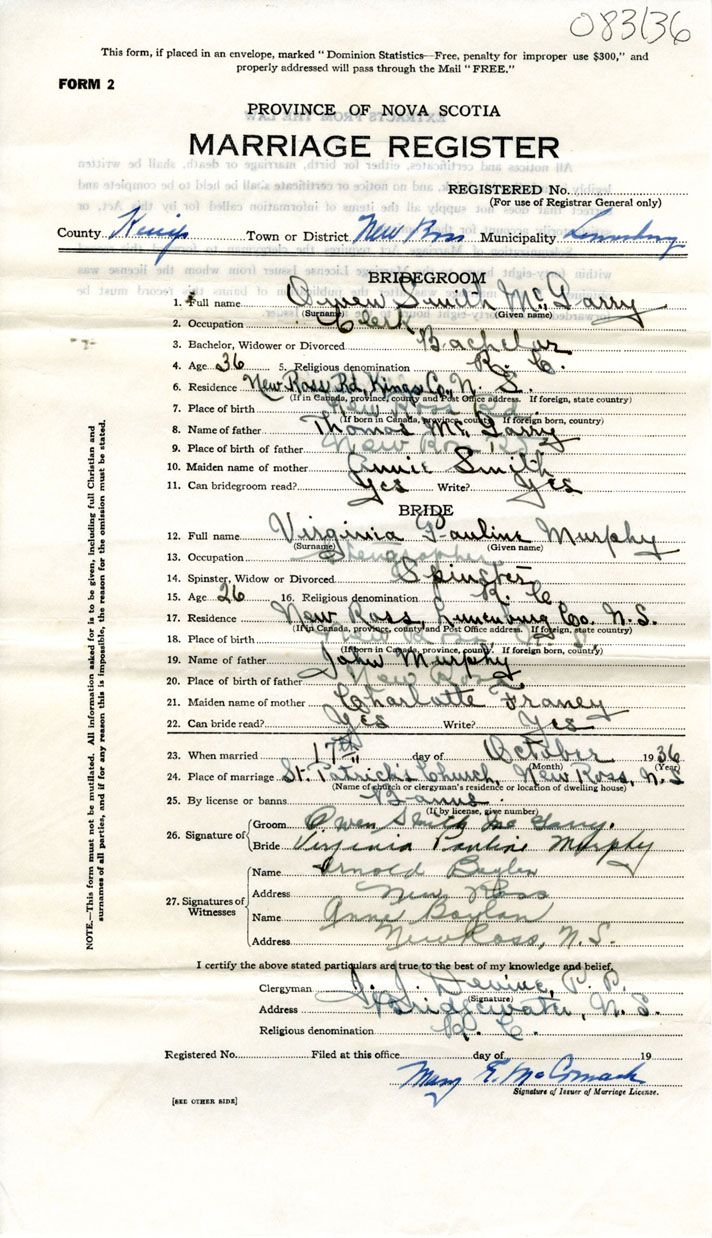 083136
This form, if placed in an envelope, marked "Dominion Statistics—Free, penalty for improper use $300," and
properly addressed will pass through the Mail "FREE."
FORM 2
PROVINCE OF NOVA SCOTIA
MARRIAGE REGISTER
REGISTERED No.
(For use of Registrar General only)
County Kings Town or District New Ross Municipality Lunenburg
BRIDEGROOM
1. Full name Owen Smith McGarry
(Surname) (Given name)
2. Occupation Clerk
3. Bachelor, Widower or Divorced Bachelor
4. Age 36 5. Religious denomination R. C.
6. Residence New Ross Rd, Kings Co, N. S.
(If in Canada, province, county and Post Office address. If foreign, state country)
7. Place of birth New Ross Rd.
(If born in Canada, province, county. If foreign born, country)
8. Name of father Thomas McGarry
9. Place of birth of father New Ross Rd
10. Maiden name of mother Annie Smith
11. Can bridegroom read? Yes Write? Yes
BRIDE
12. Full name Virginia Pauline Murphy
(Surname) (Given name)
13. Occupation Stenographer
14. Spinster, Widow or Divorced Spinster
15. Age 26 16. Religious denomination R. C.
17. Residence New Ross, Lunenburg Co. N.S.
(If in Canada, province, county and Post Office address. If foreign, state country)
18. Place of birth New Ross, N. S.
(If born in Canada, province, county. If foreign born, country)
19. Name of father John Murphy
20. Place of birth of father New Ross
21. Maiden name of mother Charlotte Franey
22. Can bride read? Yes Write? Yes
23. When married 17th day of October 1936
(Month) (Year)
24. Place of marriage St. Patrick's Church, New Ross, N.S
(Name of church or clergyman's residence or location of dwelling house)
25. By license or banns Banns
(If by license, give number)
26. Signature of
Groom Owen Smith McGarry.
Bride Virginia Pauline Murphy
27. Signatures of Witnesses
Name Arnold Boylan
Address New Ross
Name Anne Boylan
Address New Ross, N.S.
I certify the above stated particulars are true to the best of my knowledge and belief,
Clergyman J. J. Devine, P. P.
(Signature)
Address Bridgewater, N. S.
Religious denomination R. C.
Registered No. Filed at this office day of 19
Mary E. McCormack
Signature of Issuer of Marriage License.
[SEE OTHER SIDE]
NOTE.—This form must not be mutilated. All information asked for is to be given, including full Christian and
surnames of all parties, and if for any reason this is impossible, the reason for the omission must be stated.